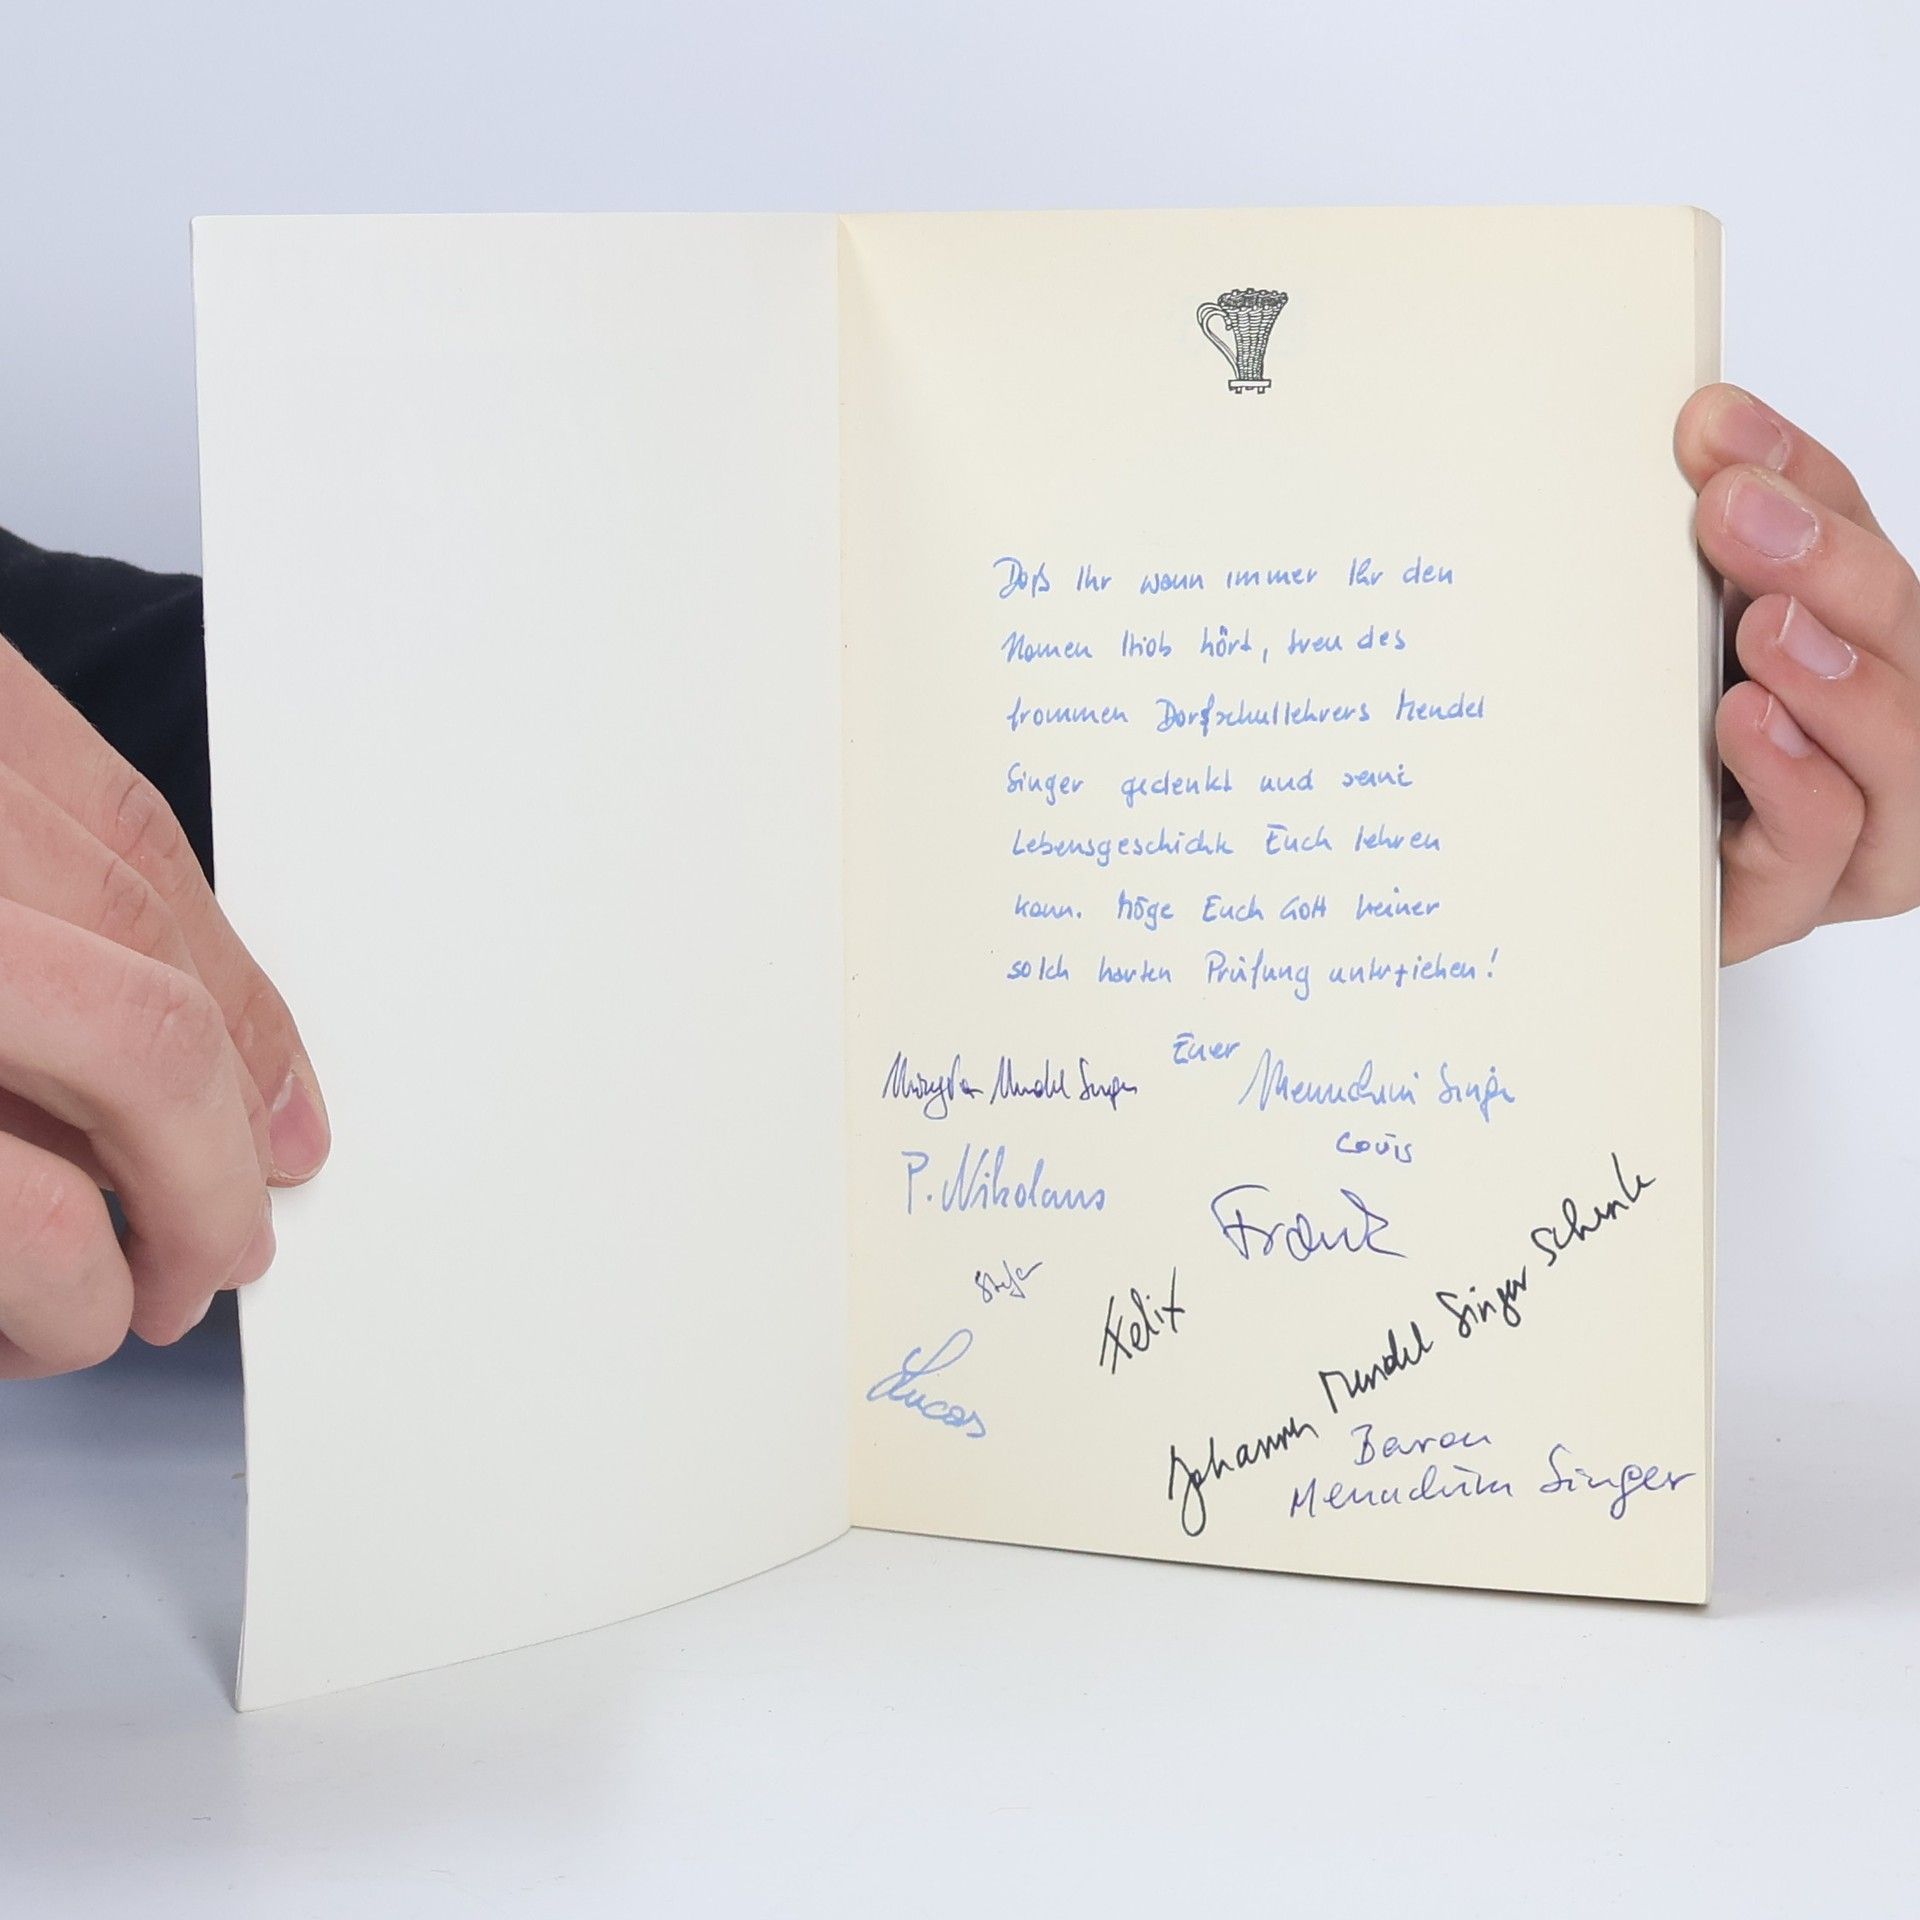 Daß Ihr wann immer Ihr den
Namen Hiob hört, treu des
frommen Dorfschullehrers Mendel
Singer gedenkt und seine
Lebensgeschichte Euch lehren
kann. Möge Euch Gott keiner
solch harten Prüfung unterziehen!
Euer
Mendel Singer
Menuchim Singer
Louis
P. Nikolaus
Frank
Stefan
Felix
Lucas
Johannes Mendel Singer Schenk
Baron
Menuchim Singer